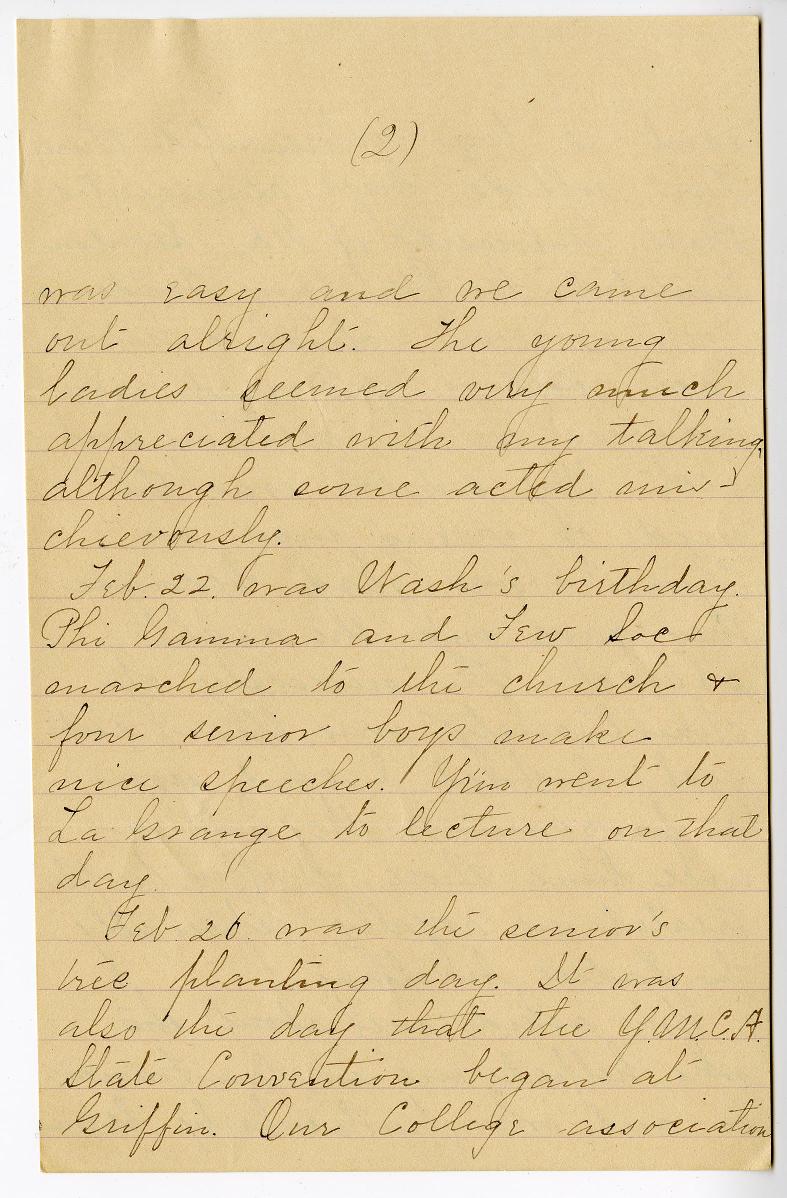 (2)
was easy and we came
out alright. The young
ladies seemed very much
appreciated with my talking,
although some acted mis-
chievously.
Feb. 22. was Wash's birthday.
Phi Gamma and Few Soc
marched to the church &
four senior boys make
nice speeches. Yun went to
La Grange to lecture on that
day.
Feb. 26. was the senior's
tree planting day. It was
also the day that the Y.M.C.A.
State Convention began at
Griffin. Our College association